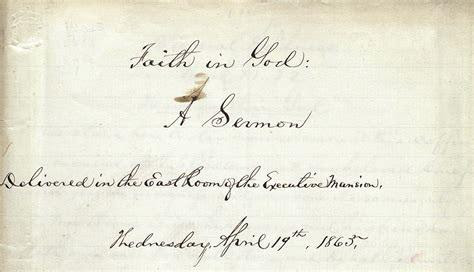 Faith in God:
A Sermon
Delivered in the East Room of the Executive Mansion,
Wednesday, April 19th, 1865,